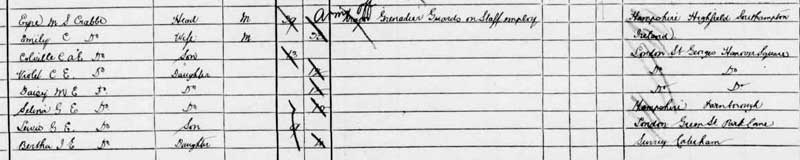 Eyre M S Crabbe Head M 39 Army Off Major Grenadier Guards on Staff employ Hampshire Highfield Southampton
Emily C Do Wife M Ireland
Colville Do Son 13 London St Georges Hanover Square
Violet C E Do Daughter Do Do
Daisy M E Do Do Do Do
Selina G E Do Do Hampshire Farnborough
Lewis G E Do Son 9 London Green St Park Lane
Bertha J E Do Daughter Surrey Caterham